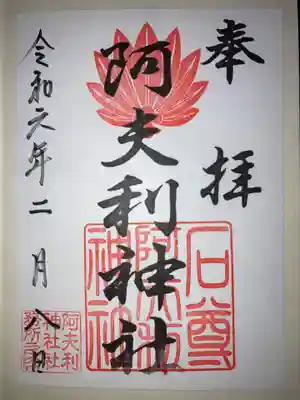 奉拝
阿夫利神社
石尊
阿夫利
神社
令和元年二月八日
阿夫利
神社社
務所之印